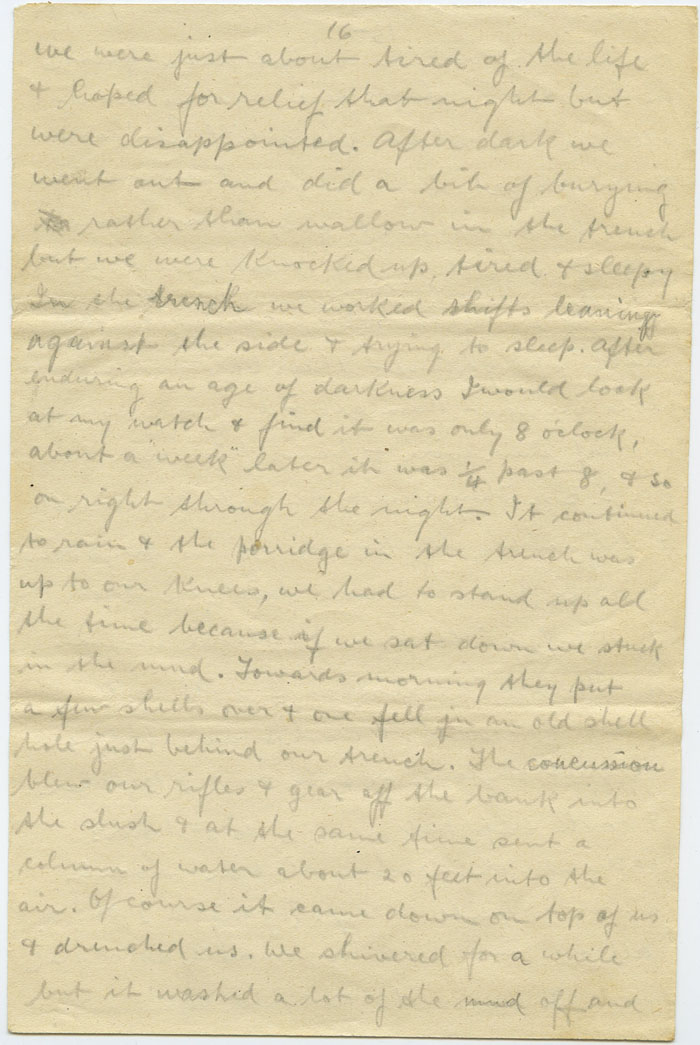 16
we were just about tired of the life
& hoped for relief that night but
were disappointed. After dark we
went out and did a bit of burying
rather than wallow in the trench
but we were knocked up, tired & sleepy
In the trench we worked shifts leaning
against the side & trying to sleep. After
enduring an age of darkness I would look
at my watch & find it was only 8 o'clock,
about a "week" later it was ¼ past 8, & so
on right through the night. It continued
to rain & the porridge in the trench was
up to our knees, we had to stand up all
the time because if we sat down we stuck
in the mud. Towards morning they put
a few shells over & one fell in an old shell
hole just behind our trench. The concussion
blew our rifles & gear off the bank into
the slush & at the same time sent a
column of water about 20 feet into the
air. Of course it came down on top of us
& drenched us. We shivered for a while
but it washed a lot of the mud off and